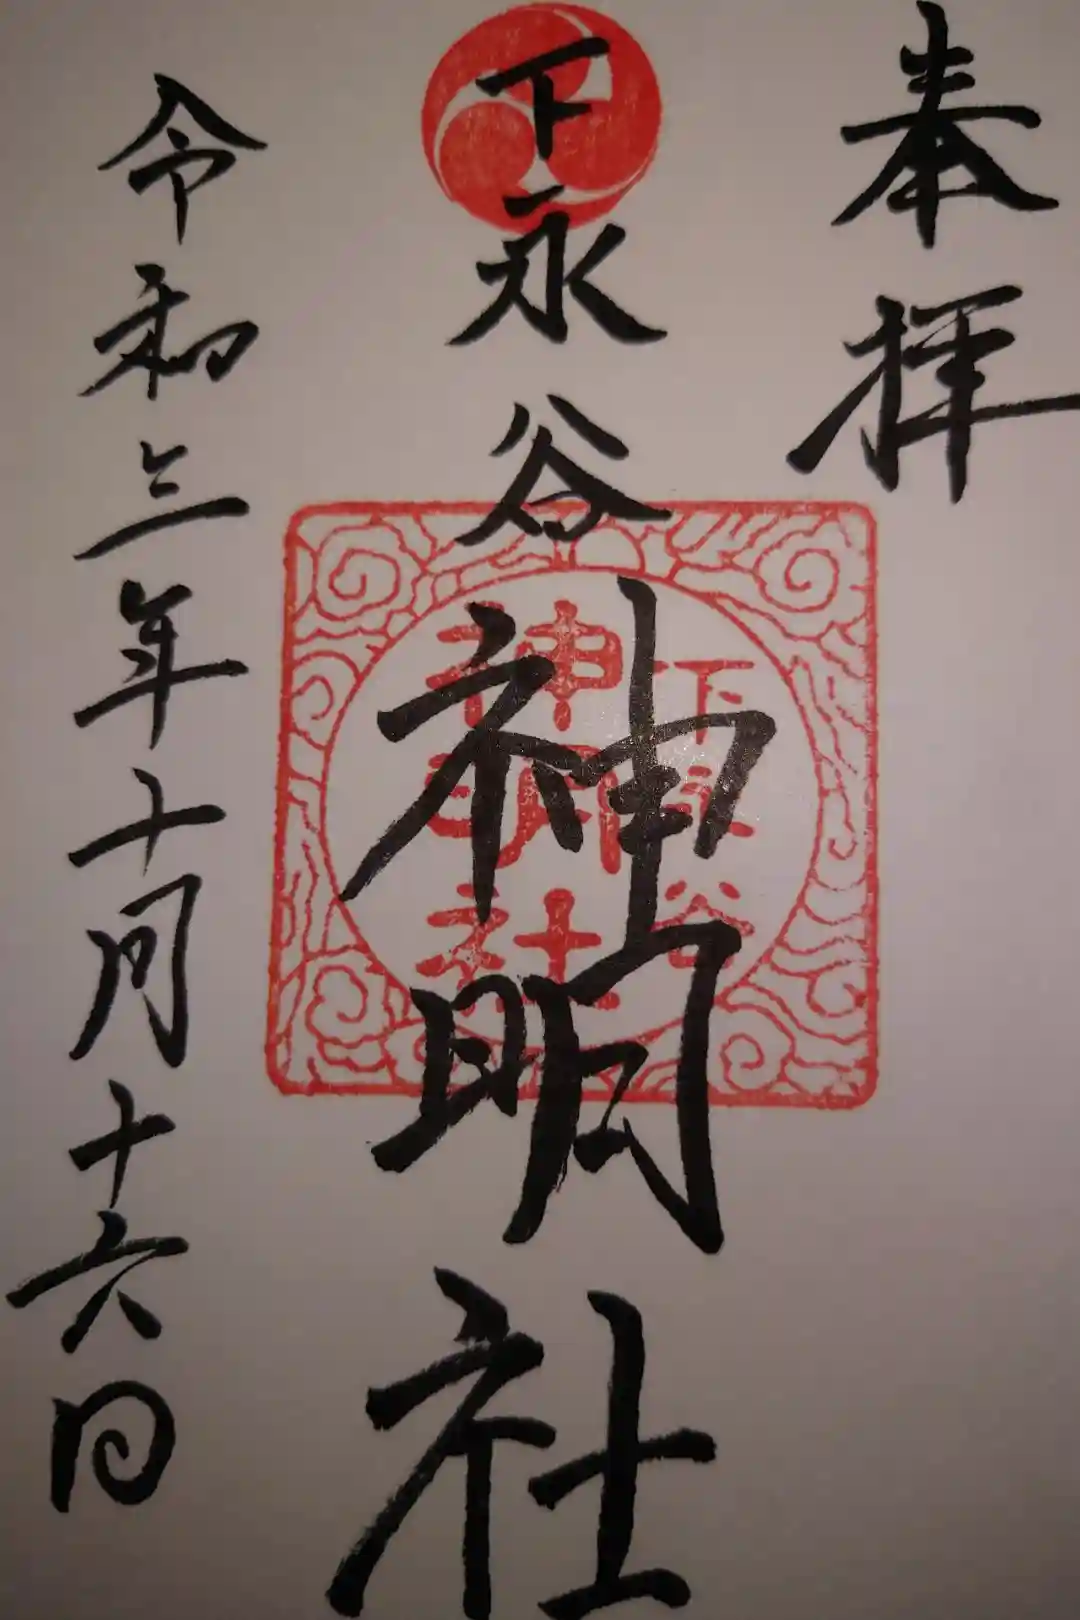 奉拝
下永谷神明社
下永谷
神明社
令和三年十月十六日